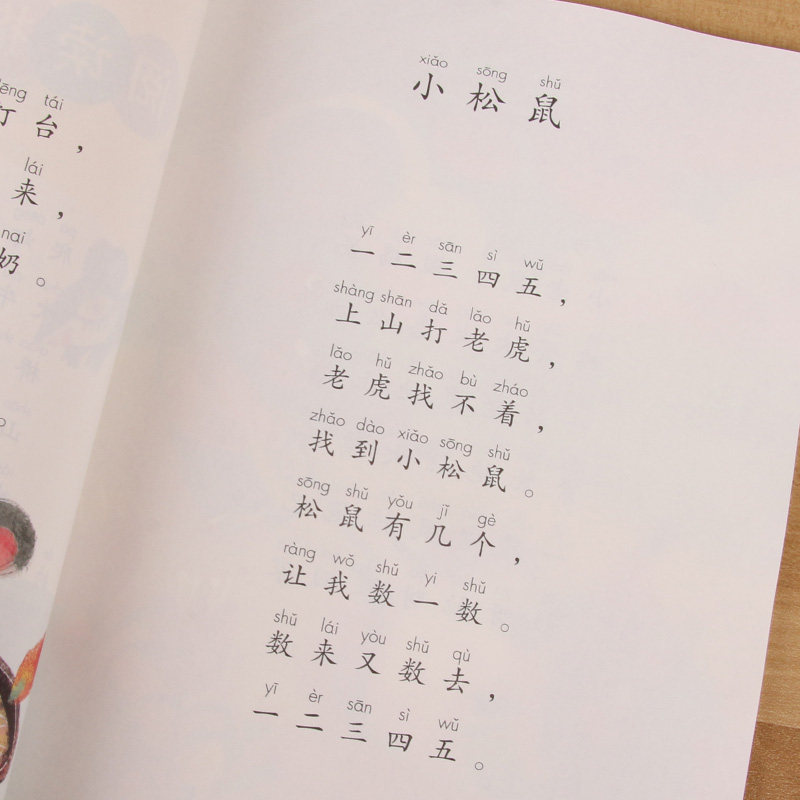 dēng tái
灯台，
lái
来，
nai
奶。
xiǎo sōng shǔ
小松鼠
yī èr sān sì wǔ
一二三四五，
shàng shān dǎ lǎo hǔ
上山打老虎，
lǎo hǔ zhǎo bù zháo
老虎找不着，
zhǎo dào xiǎo sōng shǔ
找到小松鼠。
sōng shǔ yǒu jǐ gè
松鼠有几个，
ràng wǒ shǔ yi shǔ
让我数一数。
shǔ lái yòu shǔ qù
数来又数去，
yī èr sān sì wǔ
一二三四五。